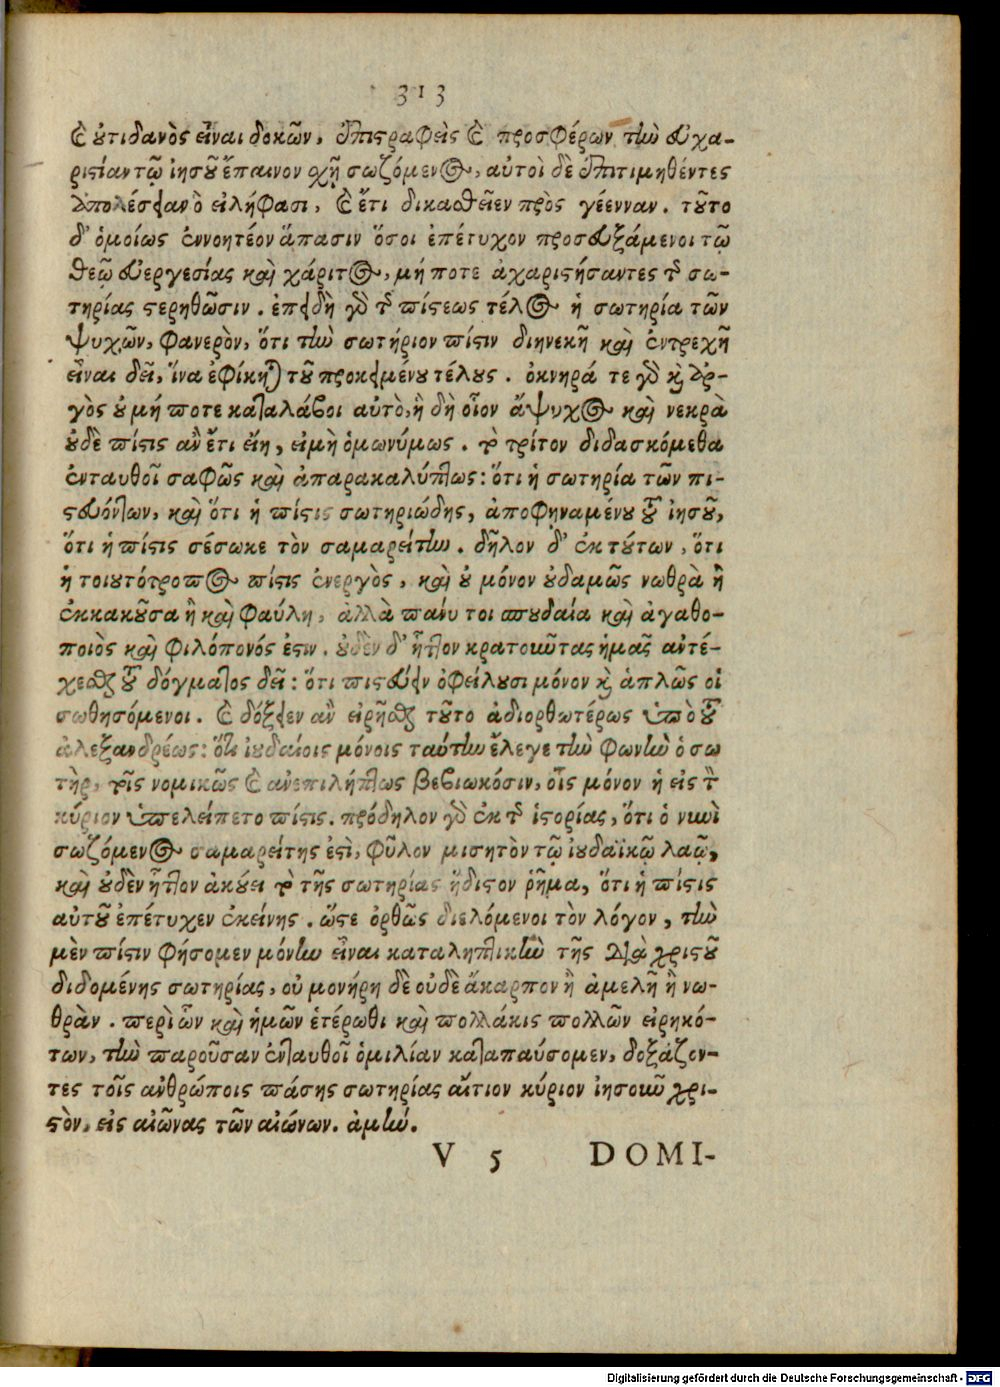 313
καὶ οὐτιδανὸς εἶναι δοκῶν, ἐπιστραφεὶς καὶ προσφέρων τὴν εὐχα-
ριστίαν τῷ ἰησοῦ ἔπαινον ἔχῃ σωζόμενος, αὐτοὶ δὲ ἐπιτιμηθέντες
ἀπολέσειαν ὃ εἰλήφασι, καὶ ἔτι δικασθεῖεν πρὸς γέενναν. τοῦτο
δ' ὁμοίως ἐννοητέον ἅπασιν ὅσοι ἐπέτυχον προσευξάμενοι τῷ
θεῷ εὐεργεσίας καὶ χάριτος, μή ποτε ἀχαριστήσαντες τῆς σω-
τηρίας στερηθῶσιν. ἐπειδὴ γὰρ τῆς πίστεως τέλος ἡ σωτηρία τῶν
ψυχῶν, φανερὸν, ὅτι τὴν σωτήριον πίστιν διηνεκῆ καὶ ἐντρεχῆ
εἶναι δεῖ, ἵνα ἐφίκηται τοῦ προκειμένου τέλους. ὀκνηρά τε γὰρ καὶ ἀρ-
γὸς οὐ μή ποτε καταλάβοι αὐτὸ, ἢ δὴ οἷον ἄψυχος καὶ νεκρὰ
οὐδὲ πίστις ἂν ἔτι εἴη, εἰ μὴ ὁμωνύμως. τὸ τρίτον διδασκόμεθα
ἐνταυθοῖ σαφῶς καὶ ἀπαρακαλύπτως: ὅτι ἡ σωτηρία τῶν πι-
στευόντων, καὶ ὅτι ἡ πίστις σωτηριώδης, ἀποφηναμένου τοῦ ἰησοῦ,
ὅτι ἡ πίστις σέσωκε τὸν σαμαρείτην. δῆλον δ' ἐκ τούτων, ὅτι
ἡ τοιουτότροπος πίστις ἐνεργὸς, καὶ οὐ μόνον οὐδαμῶς νωθρὰ ἢ
ἐκκακοῦσα ἢ καὶ φαύλη, ἀλλὰ πάνυ τοι σπουδαία καὶ ἀγαθο-
ποιὸς καὶ φιλόπονός ἐστιν. οὐδὲν δ' ἧττον κρατοιῦτας ἡμᾶς ἀντέ-
χεσθαι τοῦ δόγματος δεῖ: ὅτι πιστεύειν ὀφείλουσι μόνον καὶ ἁπλῶς οἱ
σωθησόμενοι. καὶ δόξειεν ἂν εἰρῆσθαι τοῦτο ἀδιορθωτέρως ὑπὸ τοῦ
ἀλεξανδρέως: ὅτι ἰουδαίοις μόνοις ταύτην ἔλεγε τὴν φωνὴν ὁ σω
τὴρ, τοῖς νομικῶς καὶ ἀνεπιλήπτως βεβιωκόσιν, οἷς μόνον ἡ εἰς τὸν
κύριον ὑπελείπετο πίστις. πρόδηλον γὰρ ἐκ τῆς ἱστορίας, ὅτι ὁ νυνὶ
σωζόμενος σαμαρείτης ἐστὶ, φῦλον μισητὸν τῷ ἰουδαϊκῷ λαῷ,
καὶ οὐδὲν ἧττον ἀκούει τὸ τῆς σωτηρίας ἥδιστον ῥῆμα, ὅτι ἡ πίστις
αὐτοῦ ἐπέτυχεν ἐκείνης. ὥστε ὀρθῶς διελόμενοι τὸν λόγον, τὴν
μὲν πίστιν φήσομεν μόνην εἶναι καταληπτικὴν τῆς διὰ χριστοῦ
διδομένης σωτηρίας, οὐ μονήρη δὲ οὐδὲ ἄκαρπον ἢ ἀμελῆ ἢ νω-
θρὰν. περὶ ὧν καὶ ἡμῶν ἑτέρωθι καὶ πολλάκις πολλῶν εἰρηκό-
των, τὴν παροῦσαν ἐνταυθοῖ ὁμιλίαν καταπαύσομεν, δοξάζον-
τες τοῖς ἀνθρώποις πάσης σωτηρίας αἴτιον κύριον ἰησοῦν χρι-
στὸν, εἰς αἰῶνας τῶν αἰώνων. ἀμήν.
V 5 DOMI-
Digitalisierung gefördert durch die Deutsche Forschungsgemeinschaft - DFG